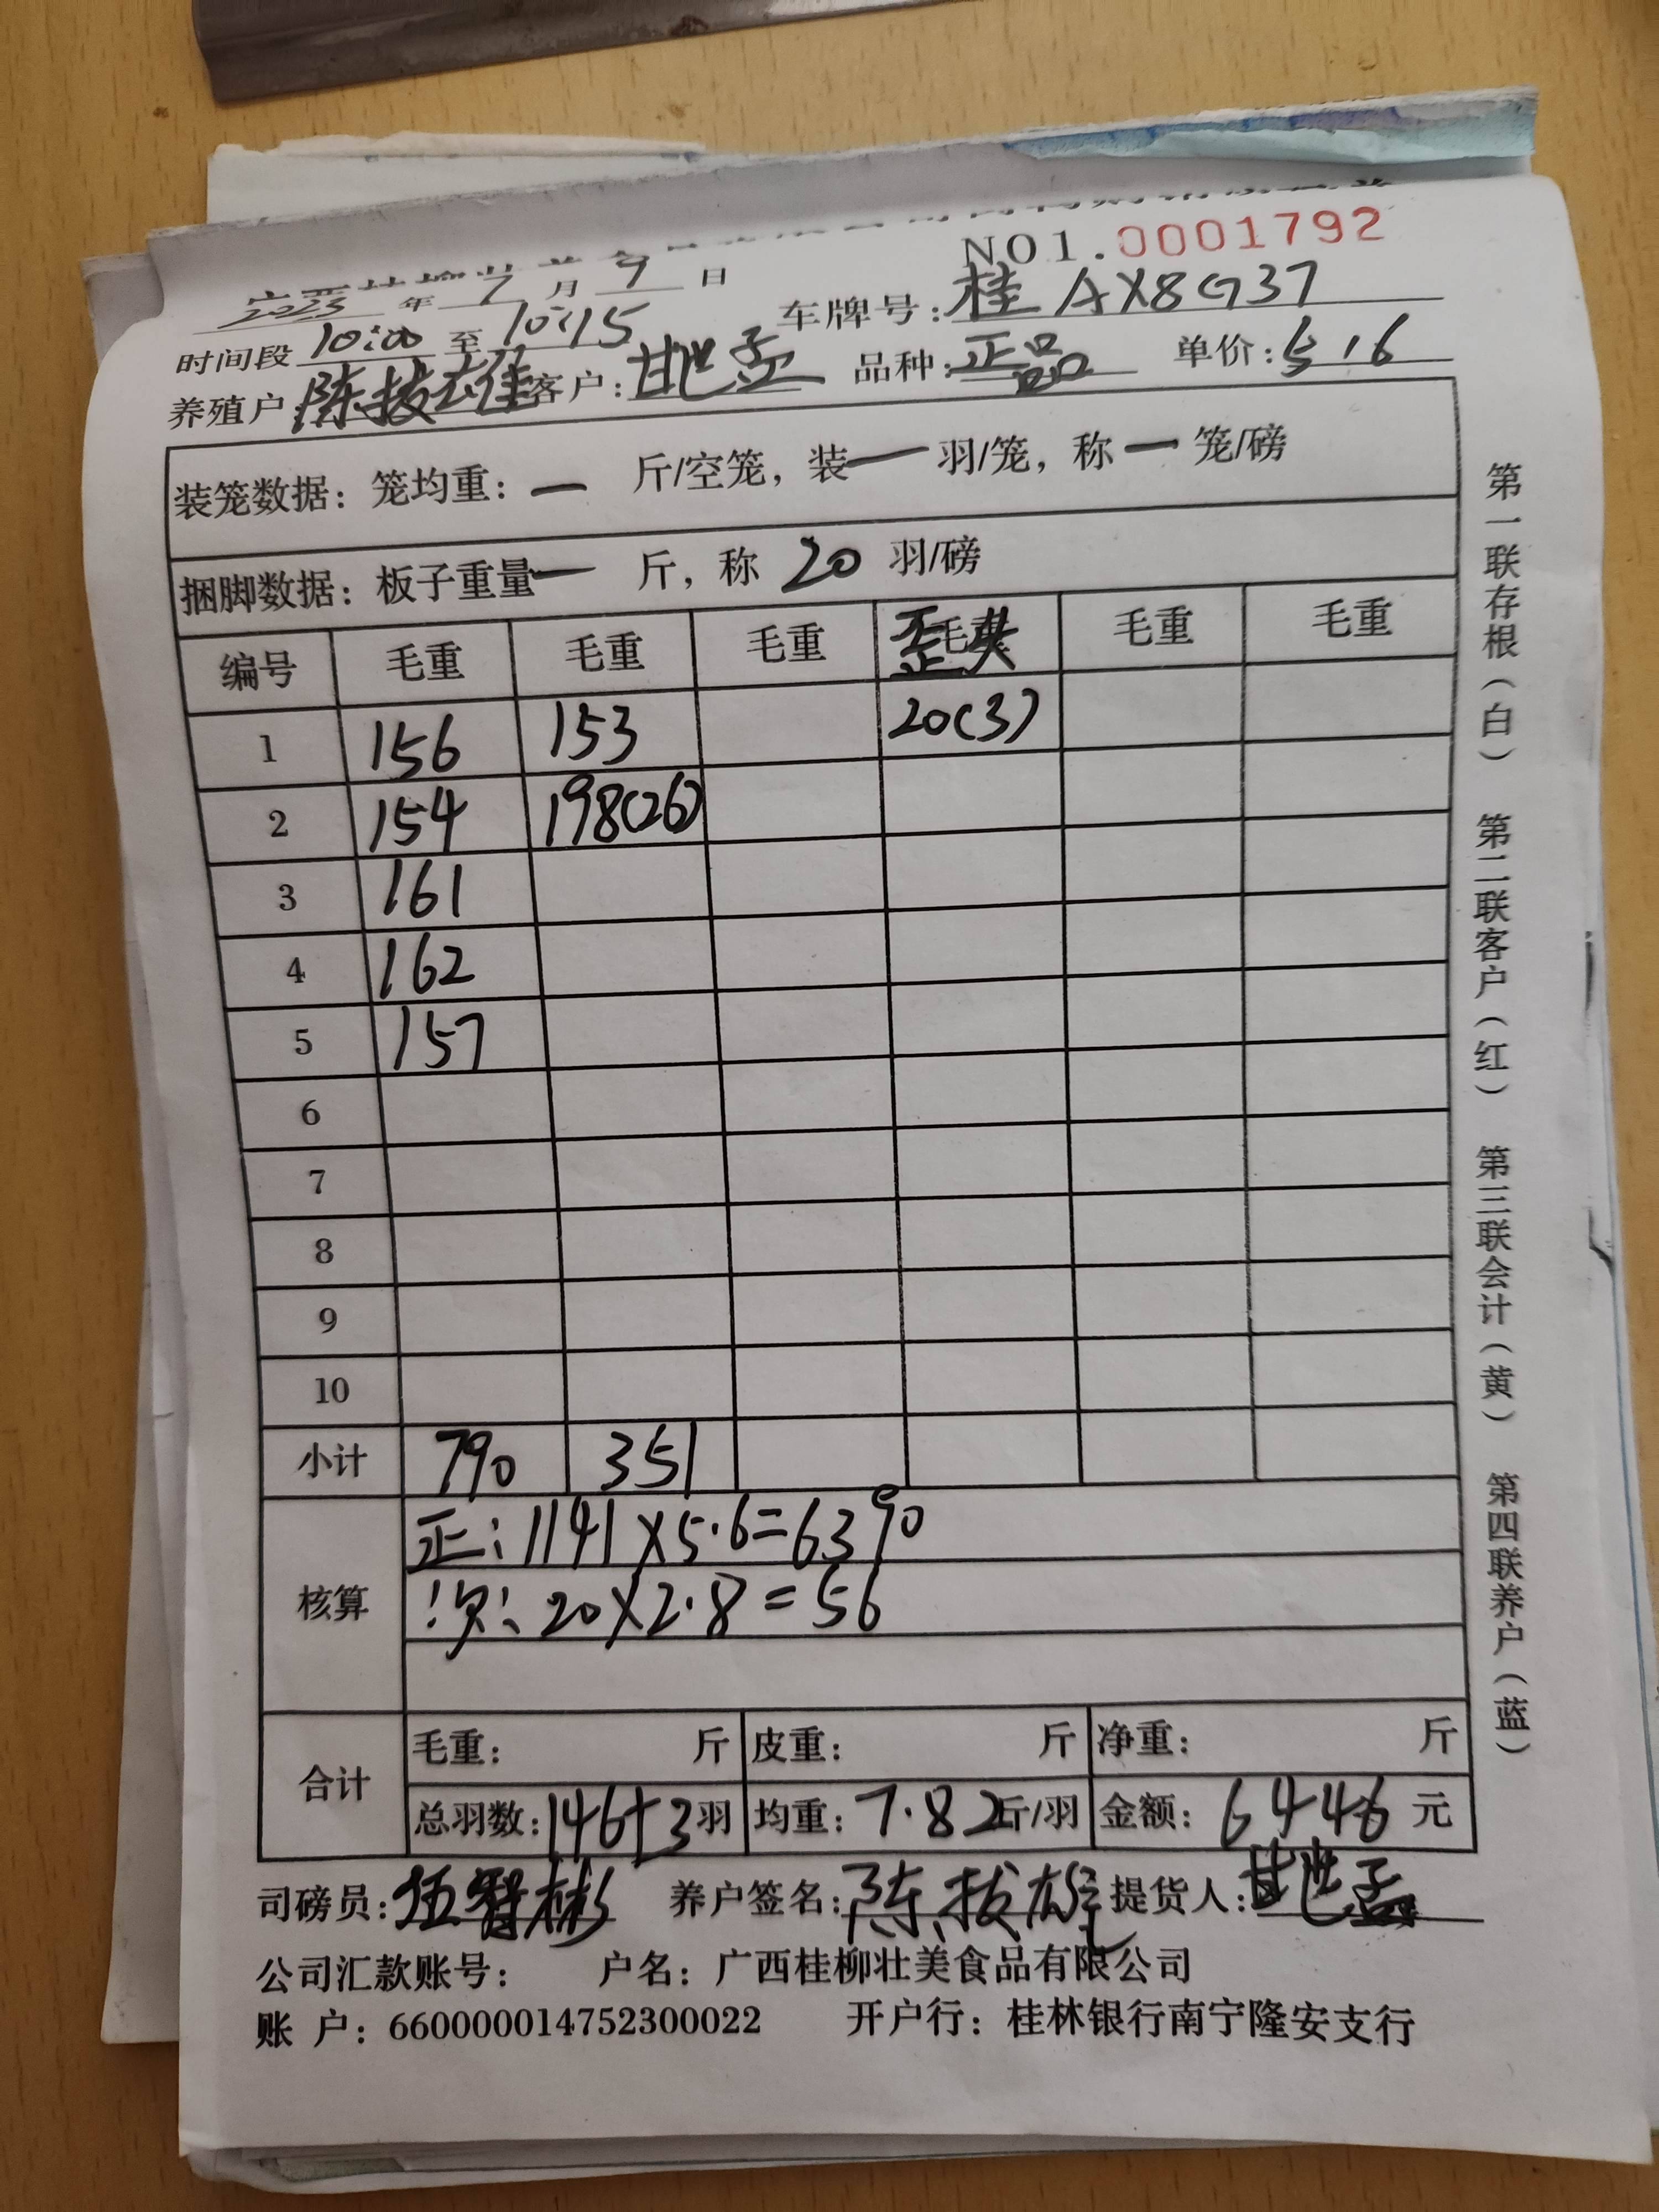 NO1.0001792
2023 年 7 月 9 日
时间段 10:00 至 10:15 车牌号:桂AX8G37
养殖户:陈拔雄 客户:甘地孟 品种:正品 单价:5.6
装笼数据:笼均重:一 斤/空笼,装一羽/笼,称一笼/磅
捆脚数据:板子重量一 斤,称 20 羽/磅
编号 毛重 毛重 毛重 歪头 毛重 毛重
1 156 153 20(3)
2 154 198(26)
3 161
4 162
5 157
6
7
8
9
10
小计 790 351
核算 正:1141×5.6=6390
次:20×2.8=56
合计 毛重: 斤 皮重: 斤 净重: 斤
总羽数:146+3羽 均重:7.82斤/羽 金额:6446 元
司磅员:伍智彬 养户签名:陈拔雄 提货人:甘地孟
公司汇款账号: 户名:广西桂柳壮美食品有限公司
账 户:660000014752300022 开户行:桂林银行南宁隆安支行
第一联存根(白) 第二联客户(红) 第三联会计(黄) 第四联养户(蓝)